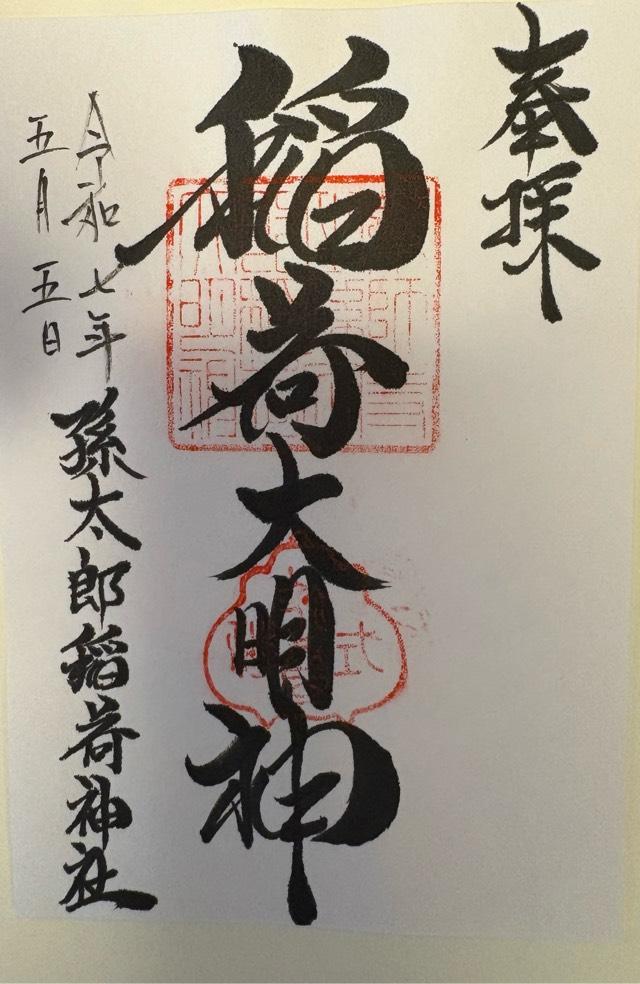 奉拝
稲荷大明神
令和七年
五月五日
孫太郎稲荷神社